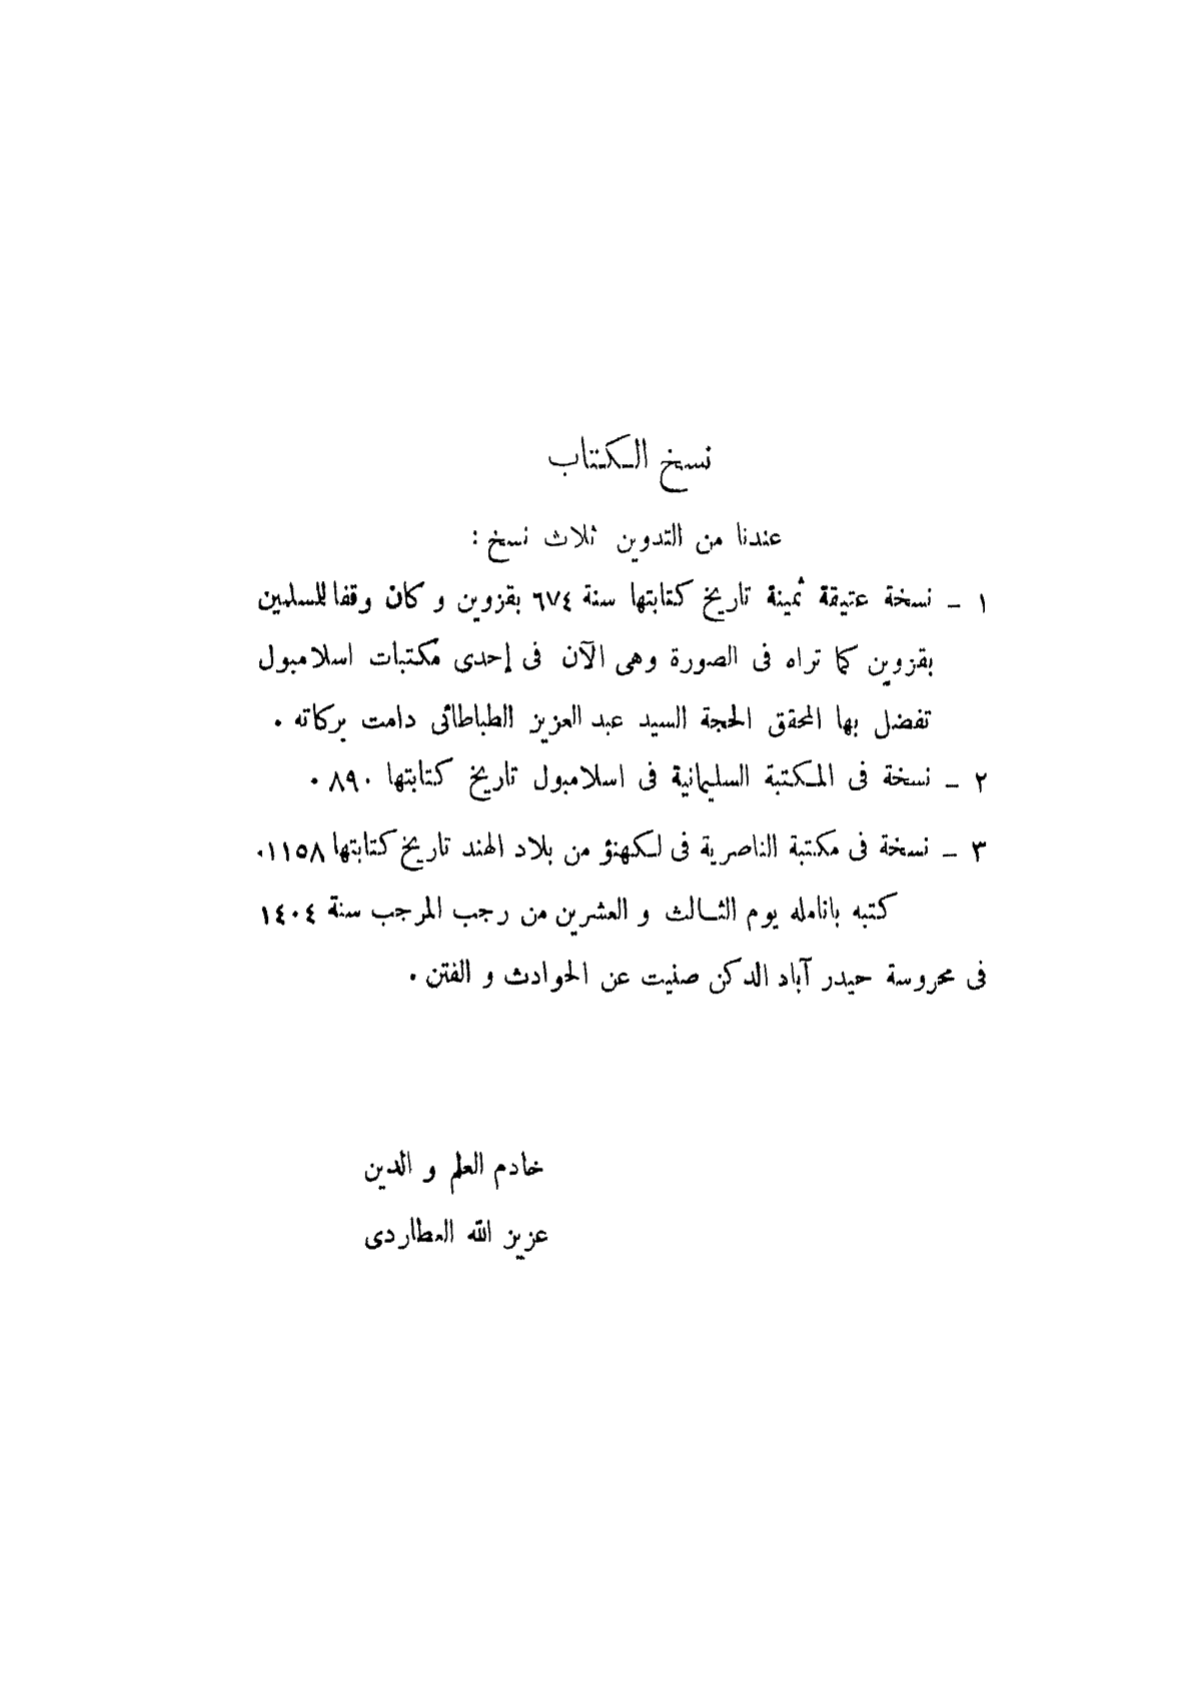 نسخ الكتاب
عندنا من التدوين ثلاث نسخ :
١ - نسخة عتيقة ثمينة تاريخ كتابتها سنة ٦٧٤ بقزوين و كان وقفا للسلمين
بقزوين كما تراه فى الصورة وهى الآن فى إحدى مكتبات اسلامبول
تفضل بها المحقق الحجة السيد عبد العزيز الطباطائى دامت بركاته .
٢ - نسخة فى المكتبة السليمانية فى اسلامبول تاريخ كتابتها ٨٩٠ .
٣ - نسخة فى مكتبة الناصرية فى لكهنؤ من بلاد الهند تاريخ كتابتها ١١٥٨.
كتبه بانامله يوم الثالث و العشرين من رجب المرجب سنة ١٤٠٤
فى محروسة حيدر آباد الدكن صنيت عن الحوادث و الفتن .
خادم العلم و الدين
عزيز الله العطاردى